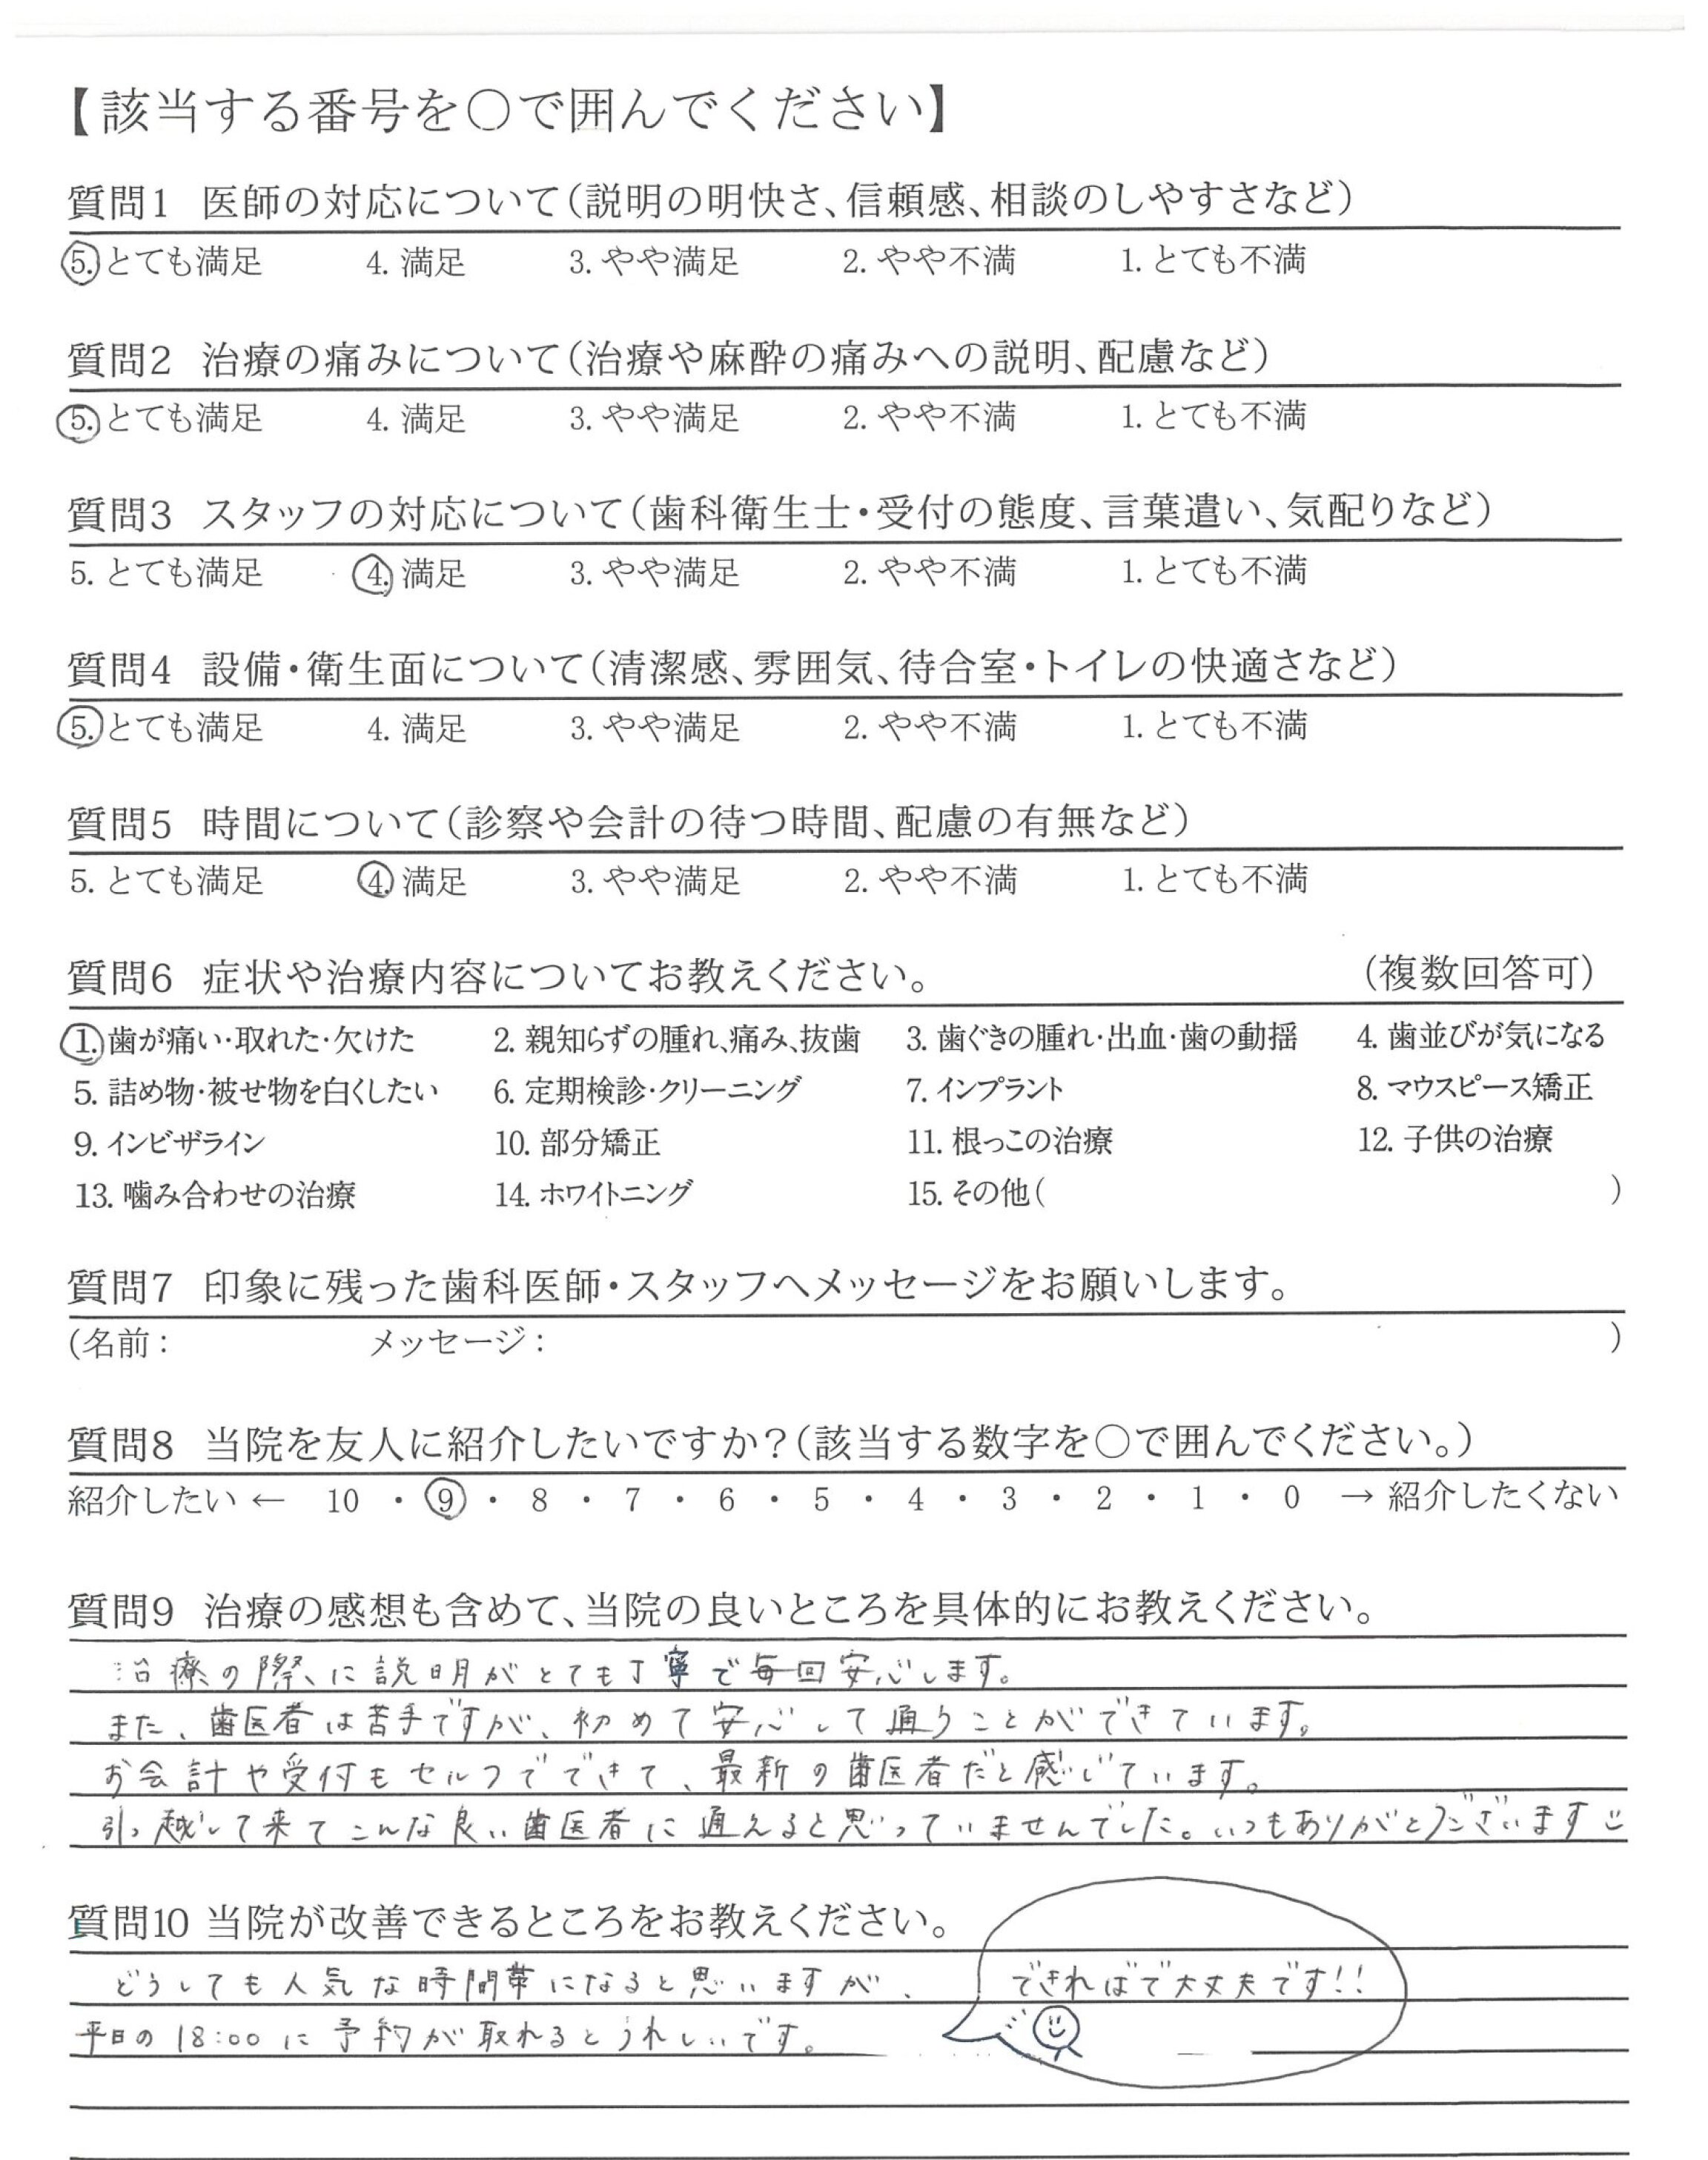 【該当する番号を○で囲んでください】
質問1 医師の対応について(説明の明快さ、信頼感、相談のしやすさなど)
5. とても満足 4. 満足 3. やや満足 2. やや不満 1. とても不満
質問2 治療の痛みについて(治療や麻酔の痛みへの説明、配慮など)
5. とても満足 4. 満足 3. やや満足 2. やや不満 1. とても不満
質問3 スタッフの対応について(歯科衛生士・受付の態度、言葉遣い、気配りなど)
5. とても満足 4. 満足 3. やや満足 2. やや不満 1. とても不満
質問4 設備・衛生面について(清潔感、雰囲気、待合室・トイレの快適さなど)
5. とても満足 4. 満足 3. やや満足 2. やや不満 1. とても不満
質問5 時間について(診察や会計の待つ時間、配慮の有無など)
5. とても満足 4. 満足 3. やや満足 2. やや不満 1. とても不満
質問6 症状や治療内容についてお教えください。 (複数回答可)
1. 歯が痛い・取れた・欠けた 2. 親知らずの腫れ、痛み、抜歯 3. 歯ぐきの腫れ・出血・歯の動揺 4. 歯並びが気になる
5. 詰め物・被せ物を白くしたい 6. 定期検診・クリーニング 7. インプラント 8. マウスピース矯正
9. インビザライン 10. 部分矯正 11. 根っこの治療 12. 子供の治療
13. 噛み合わせの治療 14. ホワイトニング 15. その他( )
質問7 印象に残った歯科医師・スタッフへメッセージをお願いします。
(名前: メッセージ: )
質問8 当院を友人に紹介したいですか?(該当する数字を○で囲んでください。)
紹介したい ← 10 ・ 9 ・ 8 ・ 7 ・ 6 ・ 5 ・ 4 ・ 3 ・ 2 ・ 1 ・ 0 → 紹介したくない
質問9 治療の感想も含めて、当院の良いところを具体的にお教えください。
治療の際に説明がとても丁寧で毎回安心します。
また、歯医者は苦手ですが、初めて安心して通うことができています。
お会計や受付もセルフでできて、最新の歯医者だと感じています。
引っ越して来てこんな良い歯医者に通えると思っていませんでした。いつもありがとうございます
質問10 当院が改善できるところをお教えください。
どうしても人気な時間帯になると思いますが、
平日の18:00に予約が取れるとうれしいです。
できればで大丈夫です!!